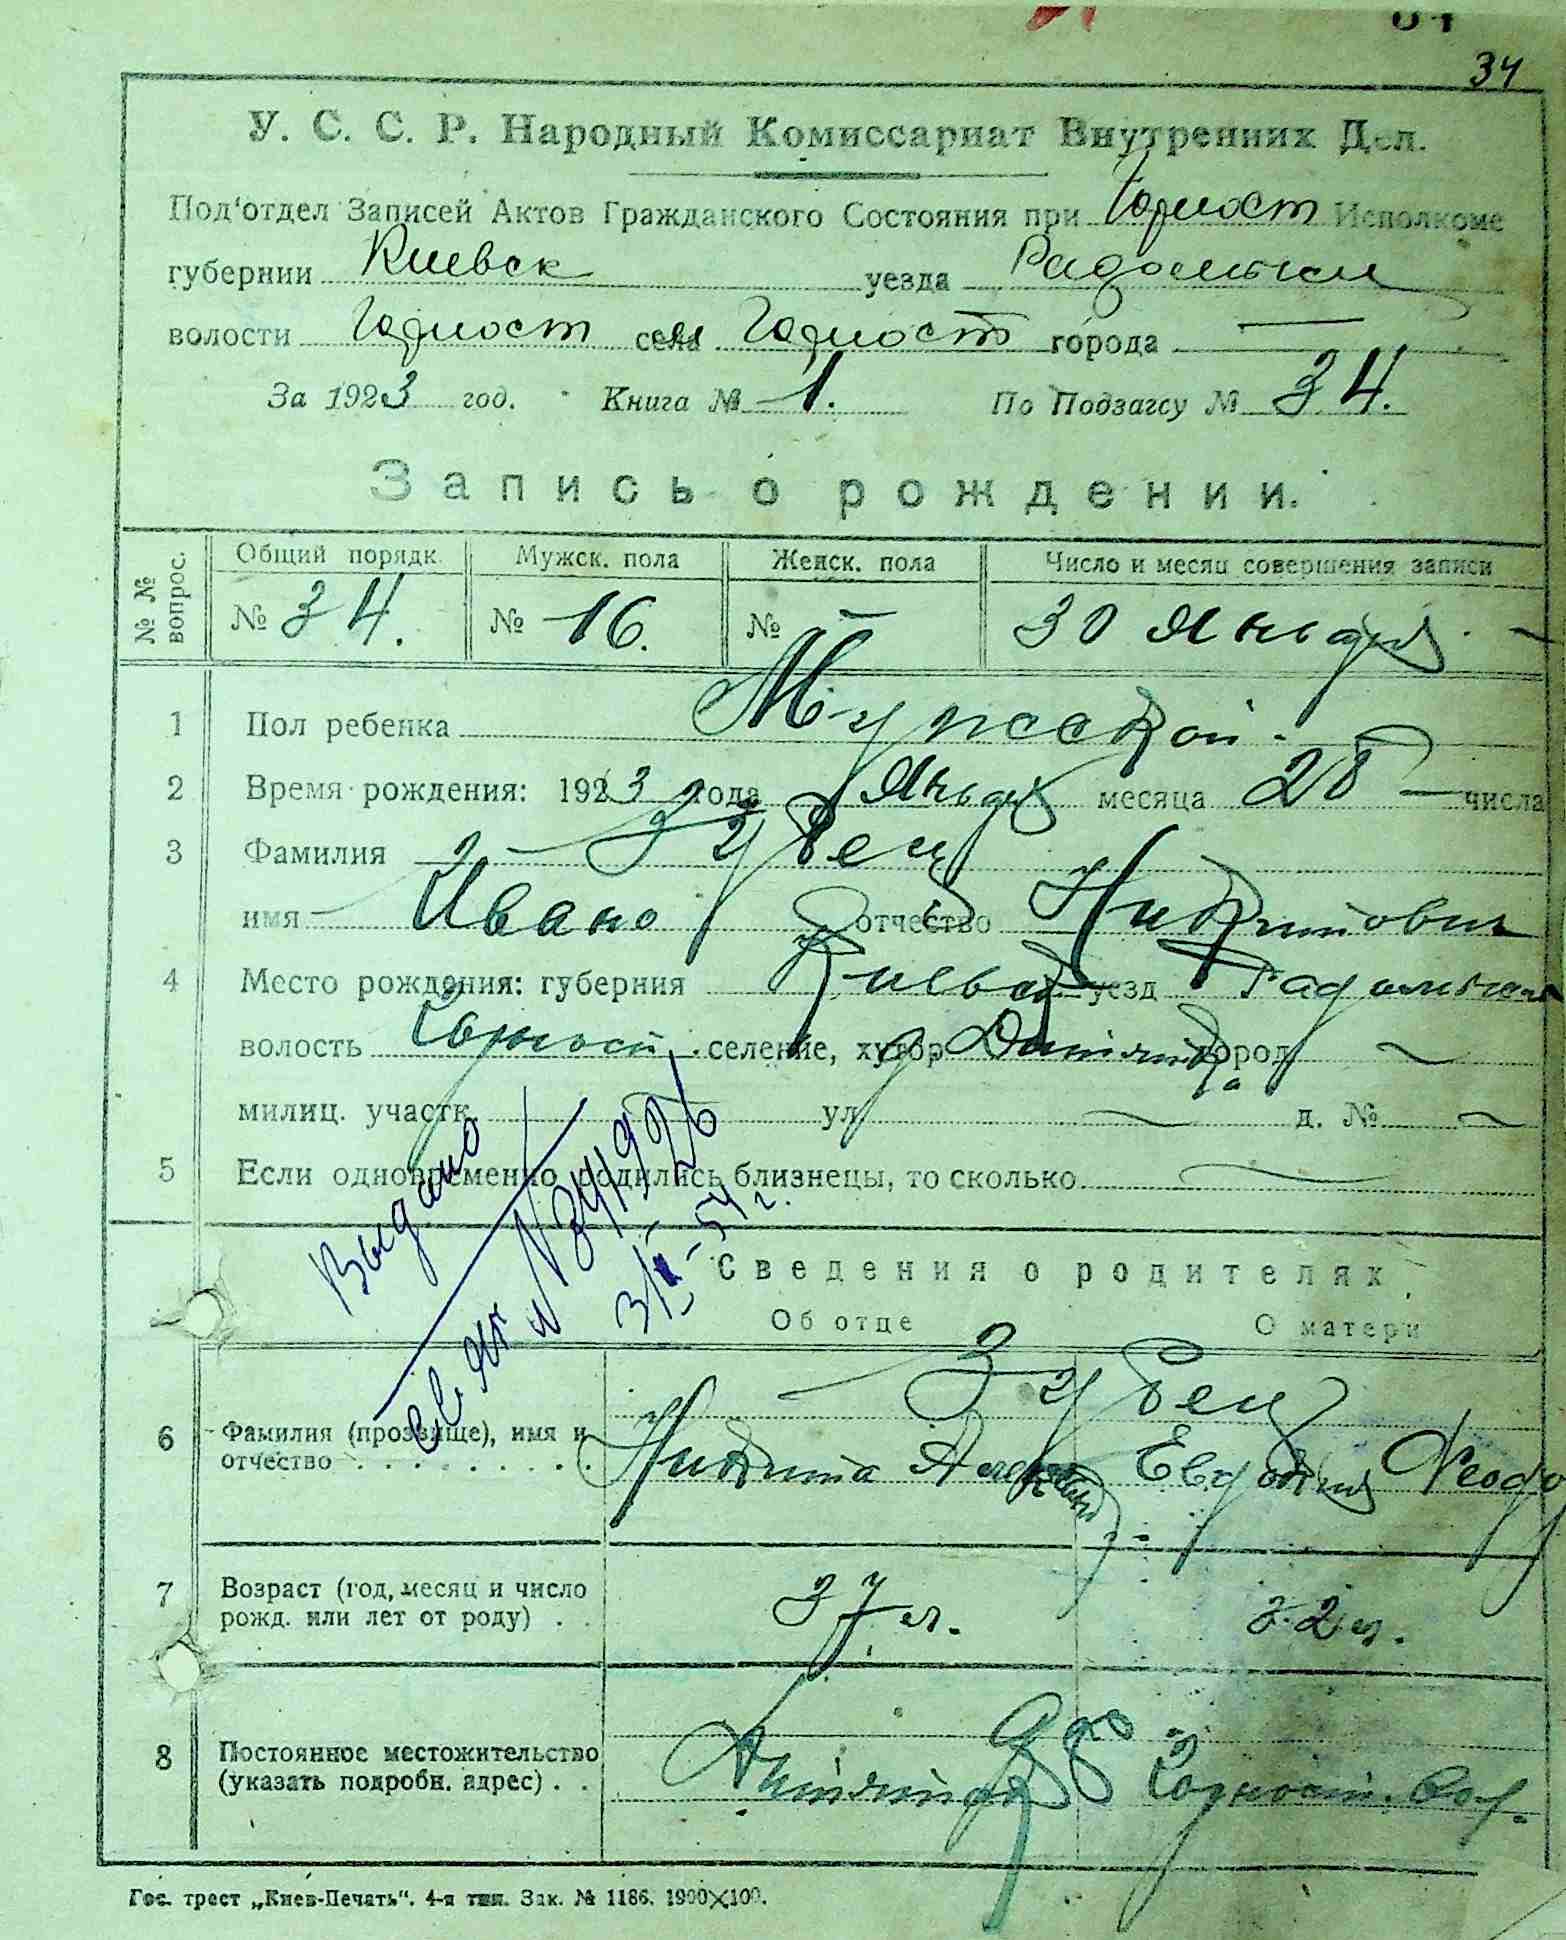 34
У. С. С. Р. Народный Комиссариат Внутренних Дел.
Под'отдел Записей Актов Гражданского Состояния при Горност Исполкоме
губернии Киевск уезда Радомысл
волости Горност села Горност города —
За 1923 год. Книга № 1. По Подзагсу № 34.
Запись о рождении.
№ № вопрос. Общий порядк. Мужск. пола Женск. пола Число и месяц совершения записи
№ 34. № 16. № — 30 Января
1 Пол ребенка Мужской.
2 Время рождения: 1923 года Января месяца 28 — числа
3 Фамилия Зубец
имя Иван отчество Никитович
4 Место рождения: губерния Киевск уезд Радомысл
волость Горност. селение, хутор город ~
милиц. участк. ул. ~ д. № ~
5 Если одновременно родились близнецы, то сколько
Выдано
св. №
3/II-54 г.
Сведения о родителях
Об отце О матери
Зубец
6 Фамилия (прозвище), имя и отчество . . . . . . . . . Никита Евдокия Феодо
7 Возраст (год, месяц и число рожд. или лет от роду) . . 37 л. 32 л.
8 Постоянное местожительство (указать подробн. адрес) . . Горност. вол.
Гос. трест „Киев-Печать“. 4-я тип. Зак. № 1186. 1900×100.